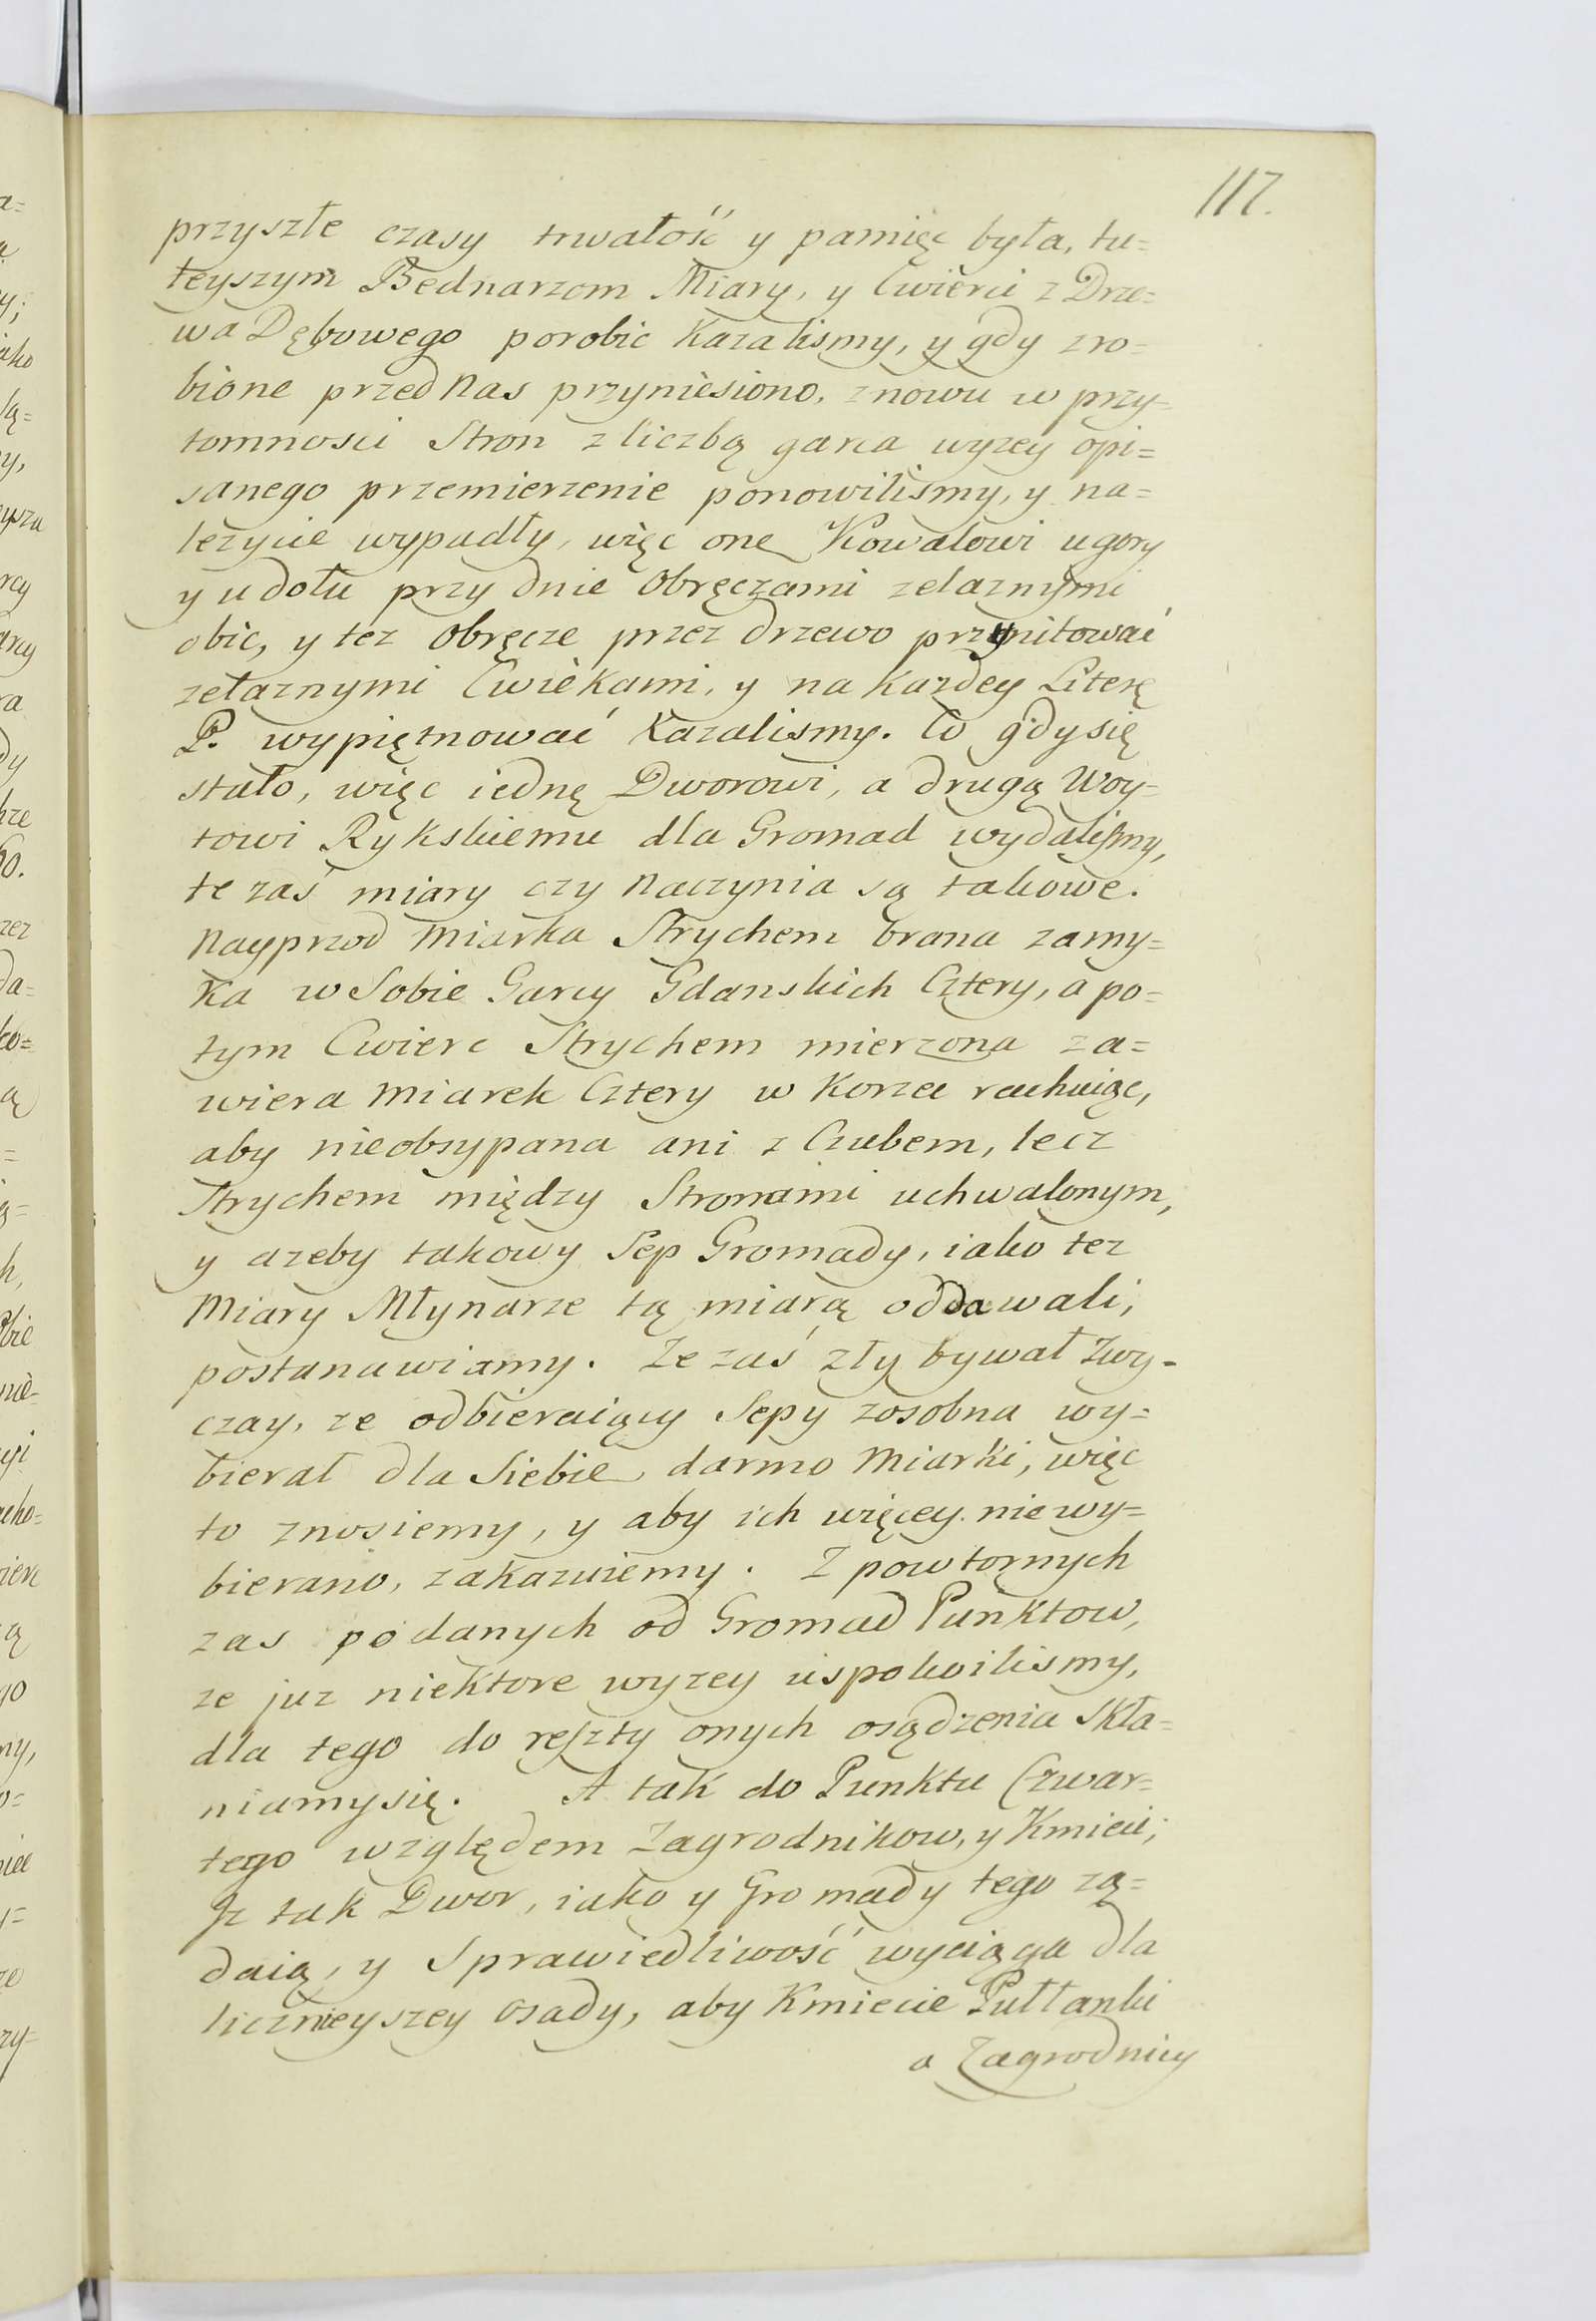 117.
przyszłe czasy trwałość y pamięc była, tu=
teyszym Bednarzom Miary, y Cwierci z Drze=
wa Dębowego porobic Kazalismy, y gdy zro=
bione przed nas przyniesiono, znowu w przy=
tomnosci Stron z liczbą garca wyzey opi=
sanego przemierzenie ponowilismy, y na=
lezycie wypadły, więc one Kowalowi ugory
y u dołu przy dnie Obręczami zelaznymi
obic, y tez Obręcze przez drzewo przynitować
zelaznymi Cwiekami, y na kazdey Literę
P. wypiętnować Kazalismy. Co gdy się
stało, więc iednę Dworowi, a drugą Woy=
towi Rykskiemu dla Gromad wydalismy,
te zaś miary czy Naczynia są takowe.
Nayprzod Miarka Strychem brana zamy=
ka w Sobie Garcy Gdanskich Cztery, a po=
tym Cwierc Strychem mierzona za=
wiera Miarek Cztery w Korzec rachuiąc,
aby nieobsypana ani z Czubem, lecz
Strychem między Stronami uchwalonym,
y azeby takowy Sep Gromady, iako tez
Miary Młynarze tą miarą oddawali,
postanawiamy. Ze zaś zły bywał Zwy=
czay, ze odbieraiący Sepy zosobna wy=
bierał dla Siebie darmo Miarki, więc
to znosiemy, y aby ich więcey nie wy=
bierano, zakazuiemy. Z powtornych
zas podanych od Gromad Punktow,
ze juz niektore wyzey uspokoilismy,
dla tego do reszty onych osądzenia Skła=
niamy się. A tak do Punktu Czwar=
tego względem Zagrodnikow, y Kmieci;
Jz tak Dwor, iako y Gromady tego zą=
daią, y Sprawiedliwość wyciąga dla
licznieyszey Osady, aby Kmiecie Pułłanki
a Zagrodnicy